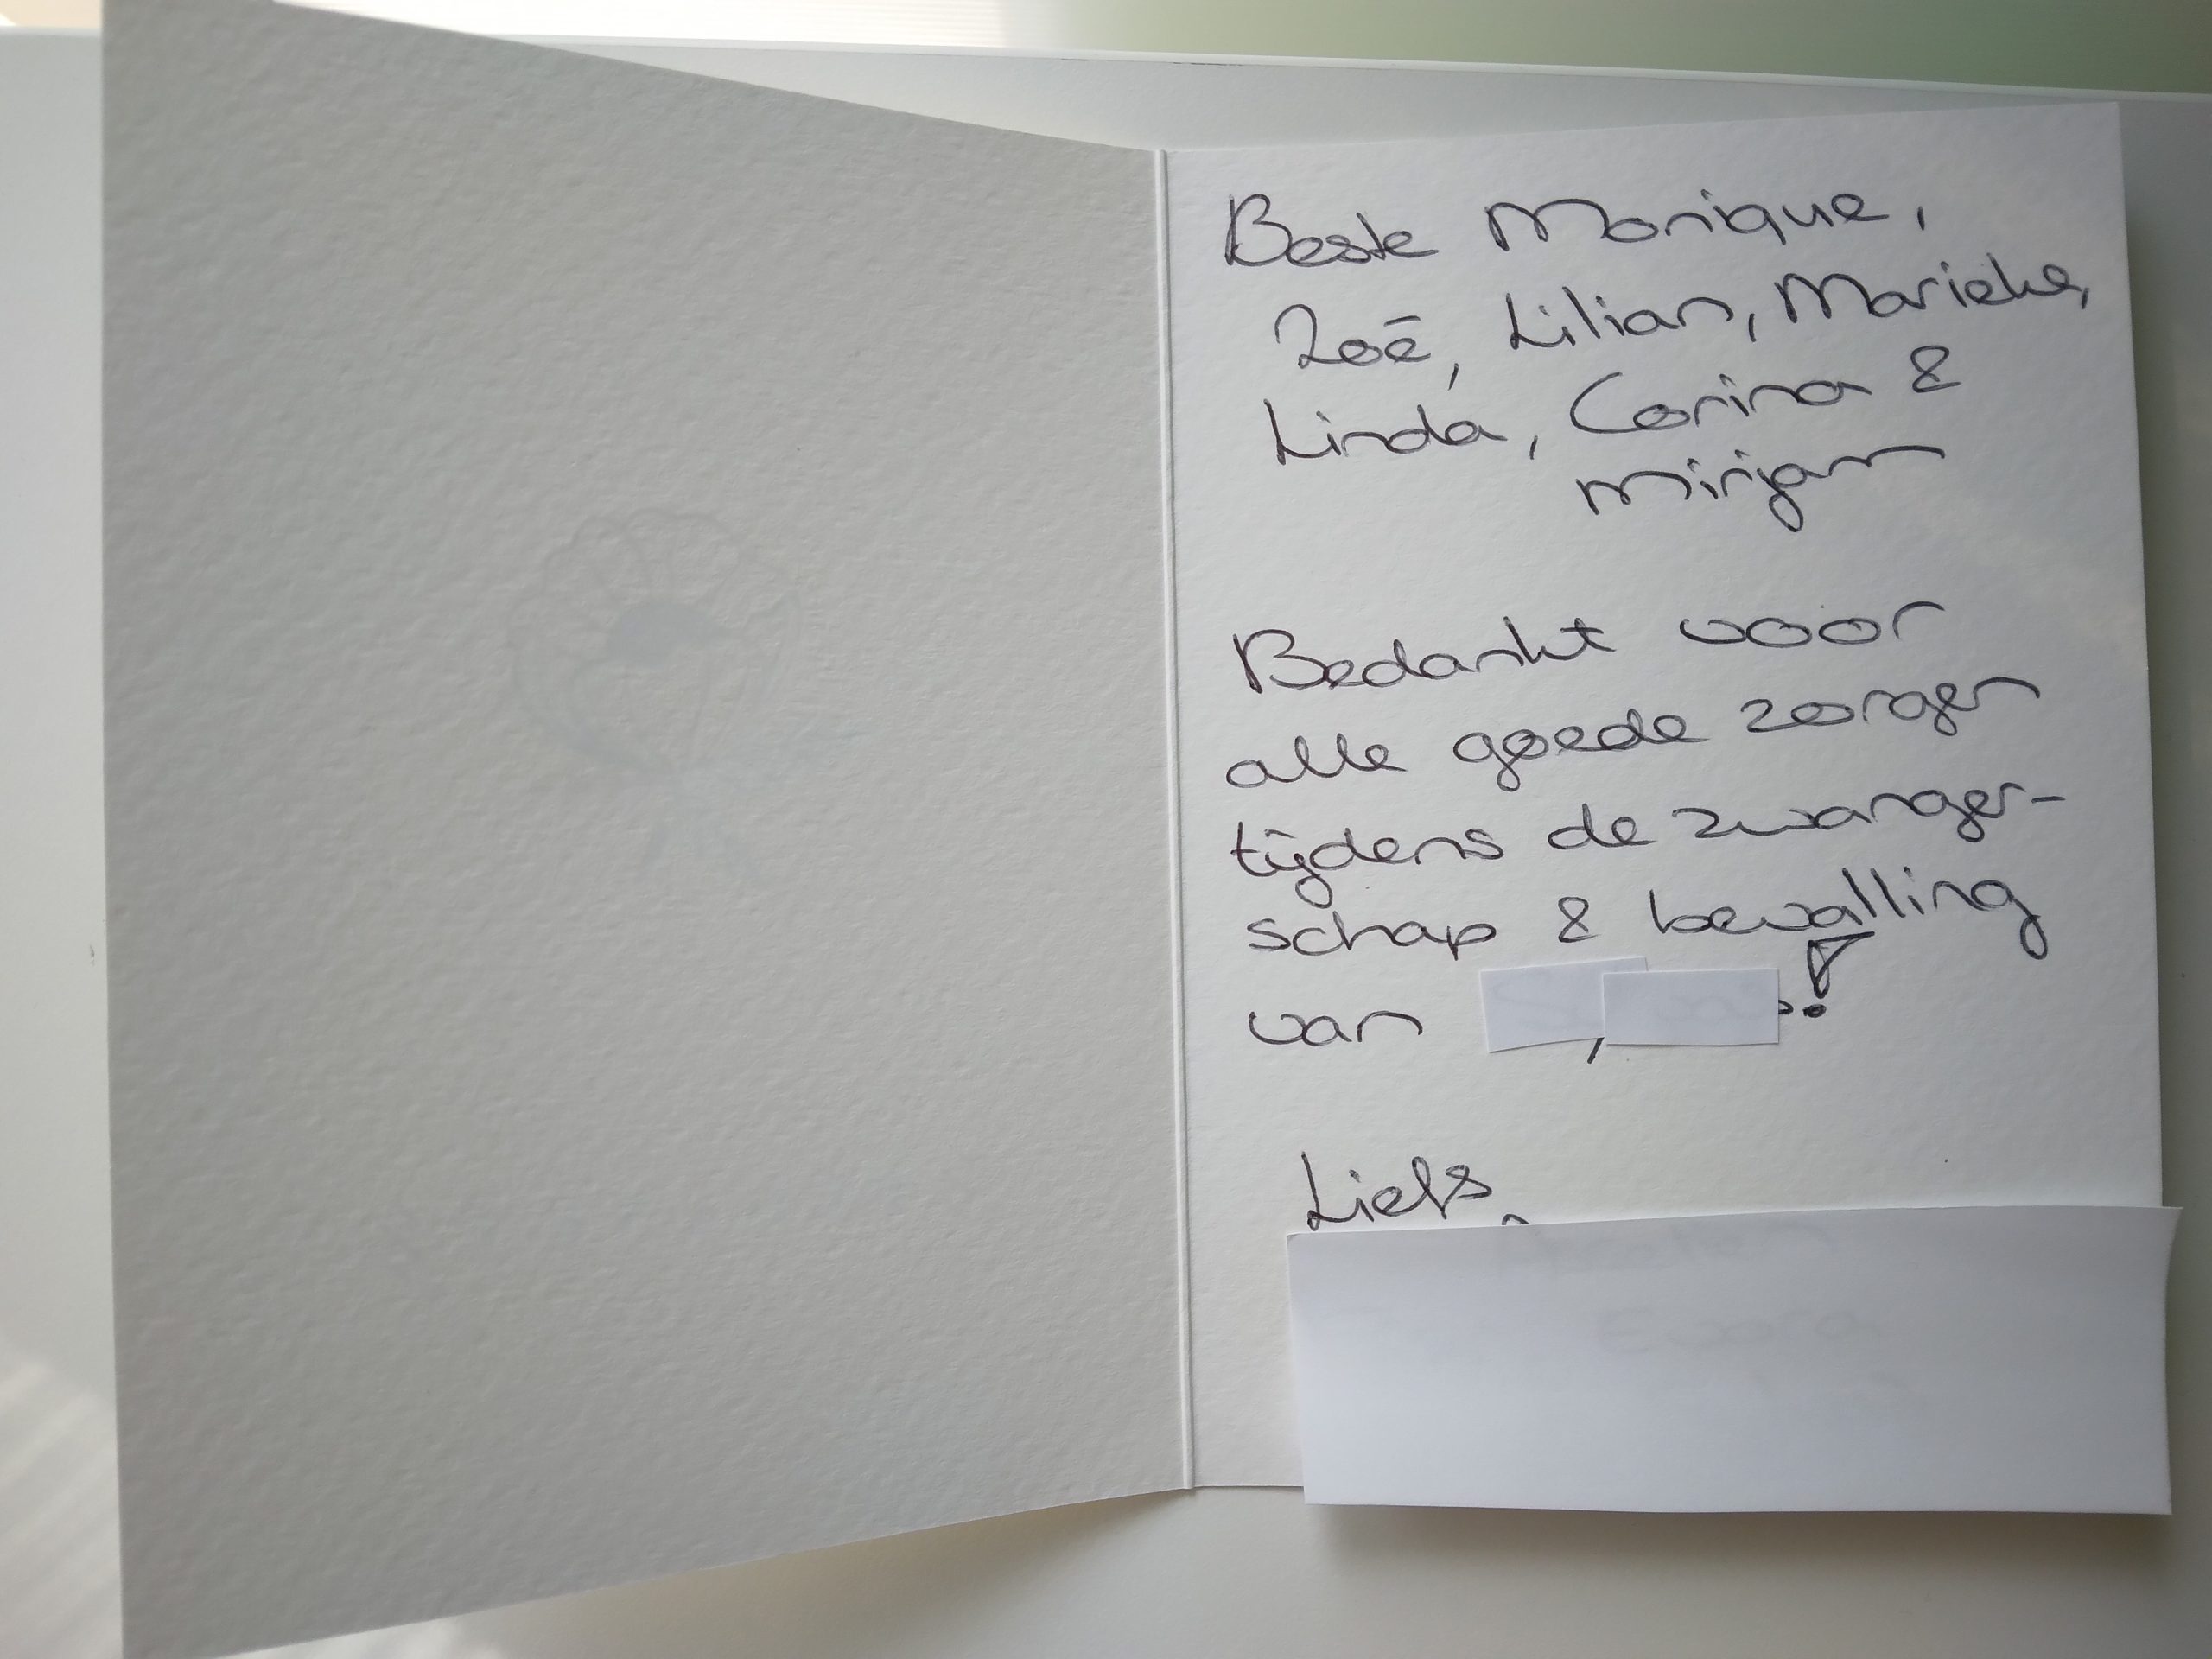 Beste Monique,
Zoë, Lilian, Marieke,
Linda, Corina &
Mirjam
Bedankt voor
alle goede zorgen
tijdens de zwanger-
schap & bevalling
van
Liefs,